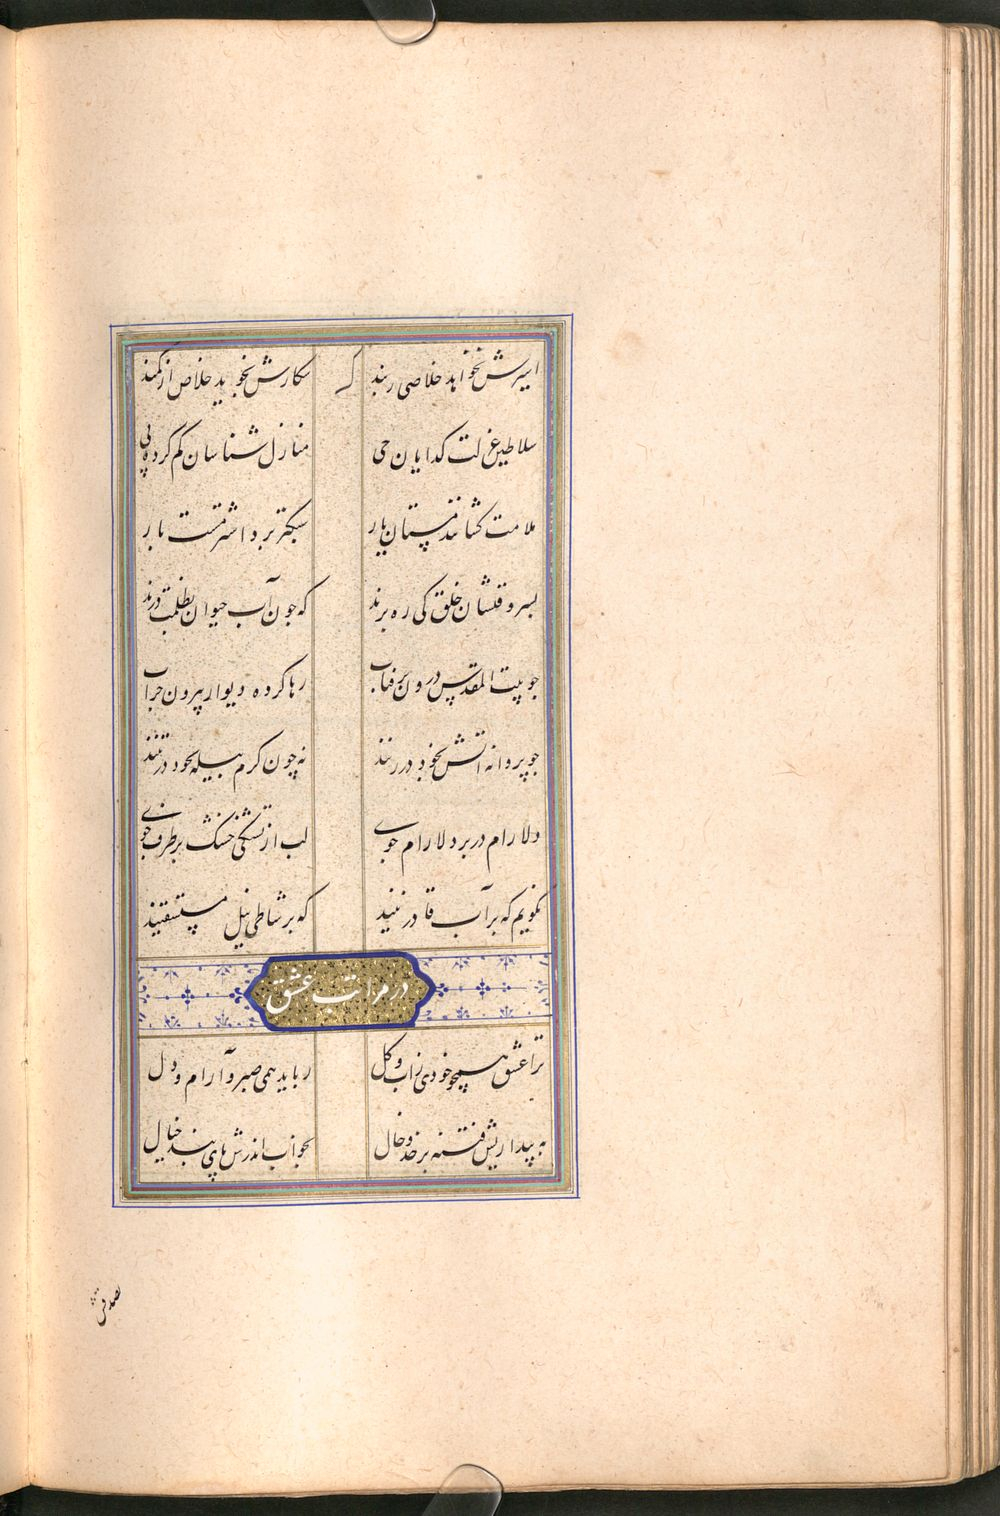 اسیرش نخواهد خلاصی ز بند شکارش نجوید خلاص از کمند
سلاطین عزلت کدایان حی منازل شناسان کم کرده پی
ملامت کشانند مستان یار سبکتر برد اشتر مست بار
بسر وقتشان خلق کی ره برند که چون آب حیوان بظلمت درند
چو بیت المقدس درون پر قباب رها کرده دیوار بیرون خراب
چو پروانه آتش بخود در زنند نه چون کرم پیله بخود در تنند
دلارام در بر دلارام جوی لب از تشنکی خشک بر طرف جوی
نکویم که بر آب قادر نیند که بر شاطی نیل مستسقیند
در مراتب عشق
ترا عشق همچو خودی زاب و کل رباید همی صبر و آرام و دل
به بیداریش فتنه بر خد و خال بخواب اندرش پای بند خیال
بصدقش